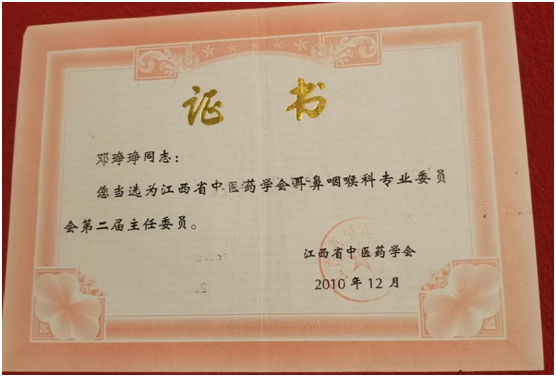 证 书
邓琤琤同志：
您当选为江西省中医药学会耳鼻咽喉科专业委员
会第二届主任委员。
江西省中医药学会
2010 年 12 月